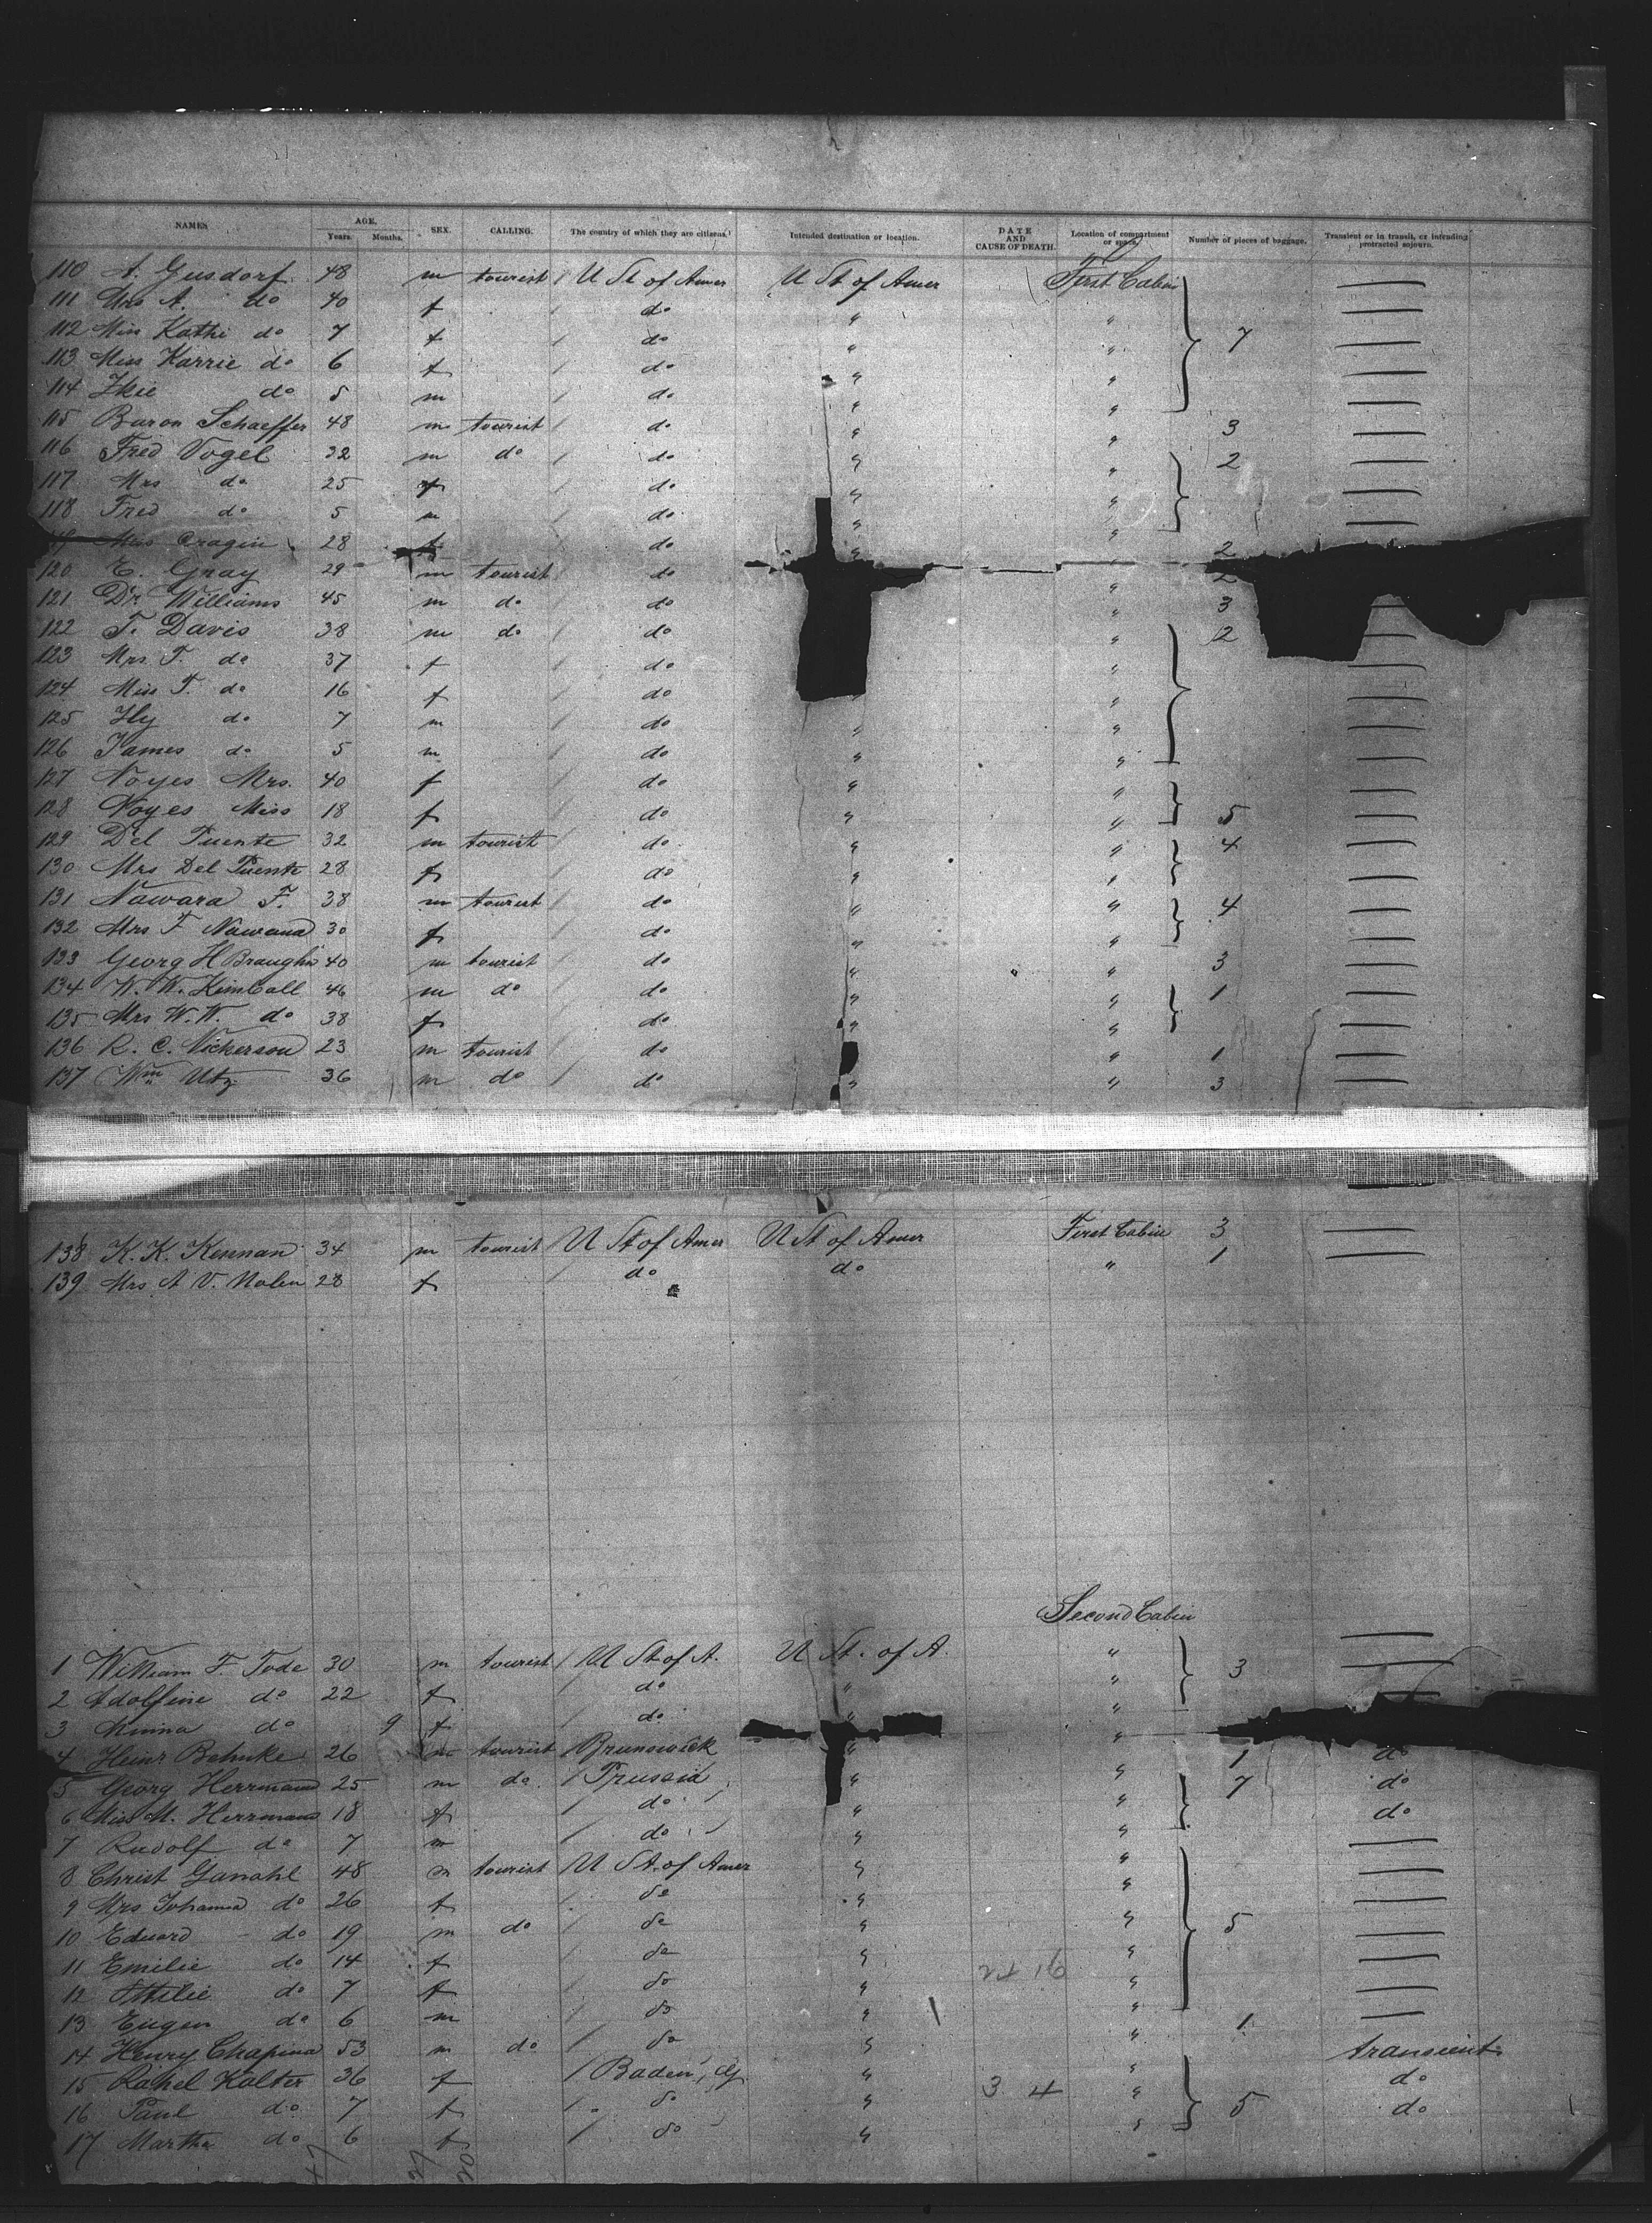 NAMES AGE. Years. Months. SEX. CALLING. The country of which they are citizens. Intended destination or location. DATE AND CAUSE OF DEATH. Location of compartment or space. Number of pieces of baggage. Transient or in transit, or intending protracted sojourn.
110 A. Gusdorf 48 m tourist / U St of Amer U St of Amer First Cabin
111 Mrs A. do 40 f / do " "
112 Miss Kathi do 7 f / do " " 7
113 Miss Karrie do 6 f / do " "
114 Ikee do 5 m / do " "
115 Baron Schaeffer 48 m tourist / do " " 3
116 Fred Vogel 32 m do / do " " 2
117 Mrs do 25 f / do " "
118 Fred do 5 m / do " "
Miss Cragin 28 f / do " 2
120 E. Gray 29 m tourist / do " 2
121 Dr Williams 45 m do / do " 3
122 T. Davis 38 m do / do " 2
123 Mrs. T. do 37 f / do "
124 Miss T. do 16 f / do " "
125 Hy do 7 m / do " "
126 James do 5 m / do " "
127 Noyes Mrs. 40 f / do " "
128 Noyes Miss 18 f / do " " 5
129 Del Puente 32 m tourist / do " " 4
130 Mrs Del Puente 28 f / do " "
131 Nawara F. 38 m tourist / do " " 4
132 Mrs F Nawara 30 f / do " "
133 Georg H 40 m tourist / do " " 3
134 W. W. Kimball 46 m do / do " " 1
135 Mrs W. W. do 38 f / do " "
136 R. C. Nickerson 23 m tourist / do " " 1
137 Wm Utz 36 m do / do " " 3
138 K. K. Kennan 34 m tourist / U St of Amer U St of Amer First Cabin 3
139 Mrs A V. Nolen 28 f / do do " 1
Second Cabin
1 William F. Tode 30 m tourist / U St of A. U St. of A. " 3
2 Adolfine do 22 f / do " "
3 Minna do 9 f / do " "
4 Heinr Behnke 26 m tourist / Brunswick " " 1 do
5 Georg Herrmann 25 m do / Prussia " " 7 do
6 Miss M. Herrmann 18 f / do " " do
7 Rudolf do 7 m / do " "
8 Christ Ganahl 48 m tourist / U St. of Amer " "
9 Mrs Johanna do 26 f / do " "
10 Eduard do 19 m do / do " " 5
11 Emilie do 14 f / do " "
12 Ottilie do 7 f / do " "
13 Eugen do 6 m / do " "
14 Henry 53 m do / do " " 1 transient
15 Rahel Kalter 36 f / Baden " " do
16 Paul do 7 f / do " 3 4 " 5 do
17 Martha do 6 f / do " "